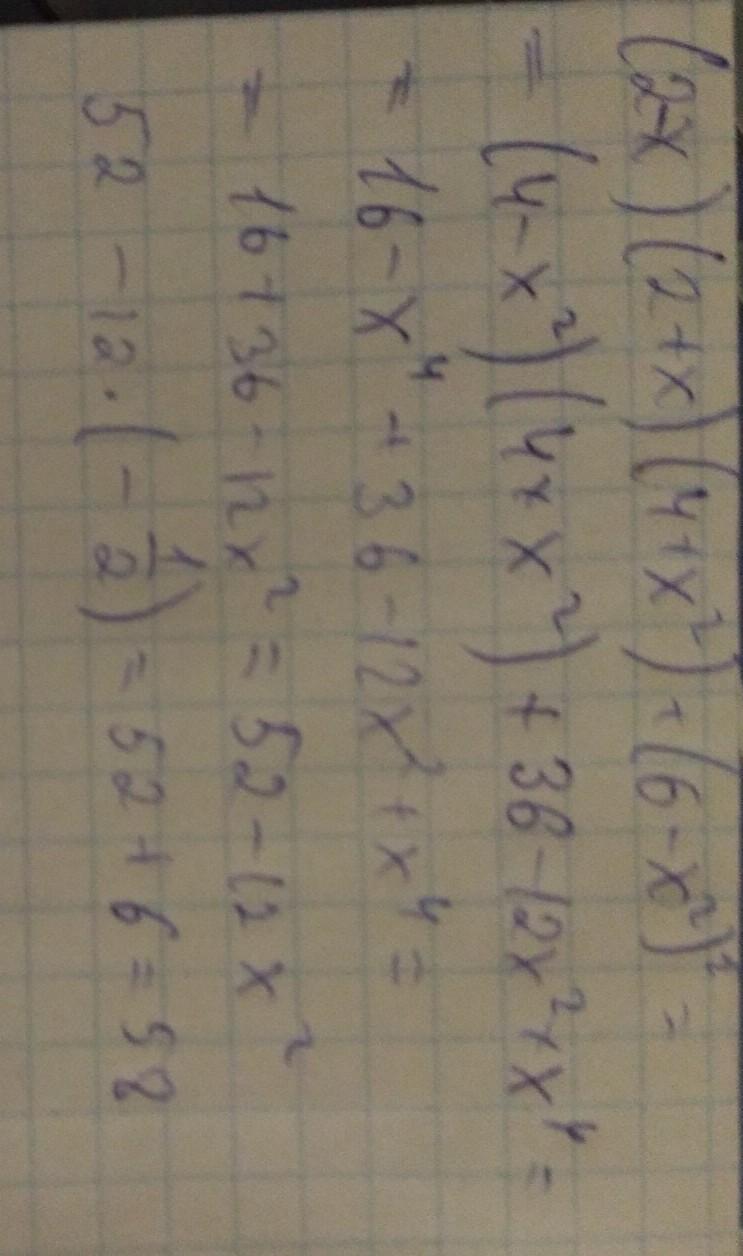 (2-x)(2+x)(4+x²)+(6-x²)² =
= (4-x²)(4+x²)+36-12x²+x⁴ =
= 16-x⁴+36-12x²+x⁴ =
= 16+36-12x² = 52-12x²
52 -12·(-1/2) = 52+6 = 58